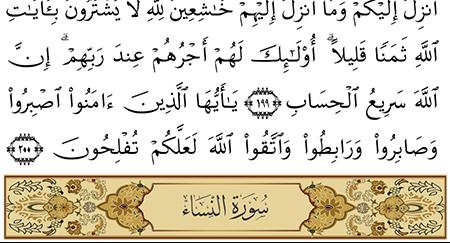 أُنزِلَ إِلَيْكُمْ وَمَآ أُنزِلَ إِلَيْهِمْ خَٰشِعِينَ لِلَّهِ لَا يَشْتَرُونَ بِـَٔايَٰتِ
ٱللَّهِ ثَمَنًا قَلِيلًا ۗ أُو۟لَٰٓئِكَ لَهُمْ أَجْرُهُمْ عِندَ رَبِّهِمْ ۗ إِنَّ
ٱللَّهَ سَرِيعُ ٱلْحِسَابِ ١٩٩ يَٰٓأَيُّهَا ٱلَّذِينَ ءَامَنُوا۟ ٱصْبِرُوا۟
وَصَابِرُوا۟ وَرَابِطُوا۟ وَٱتَّقُوا۟ ٱللَّهَ لَعَلَّكُمْ تُفْلِحُونَ ٢٠٠
سُورَةُ النِّسَاءِ